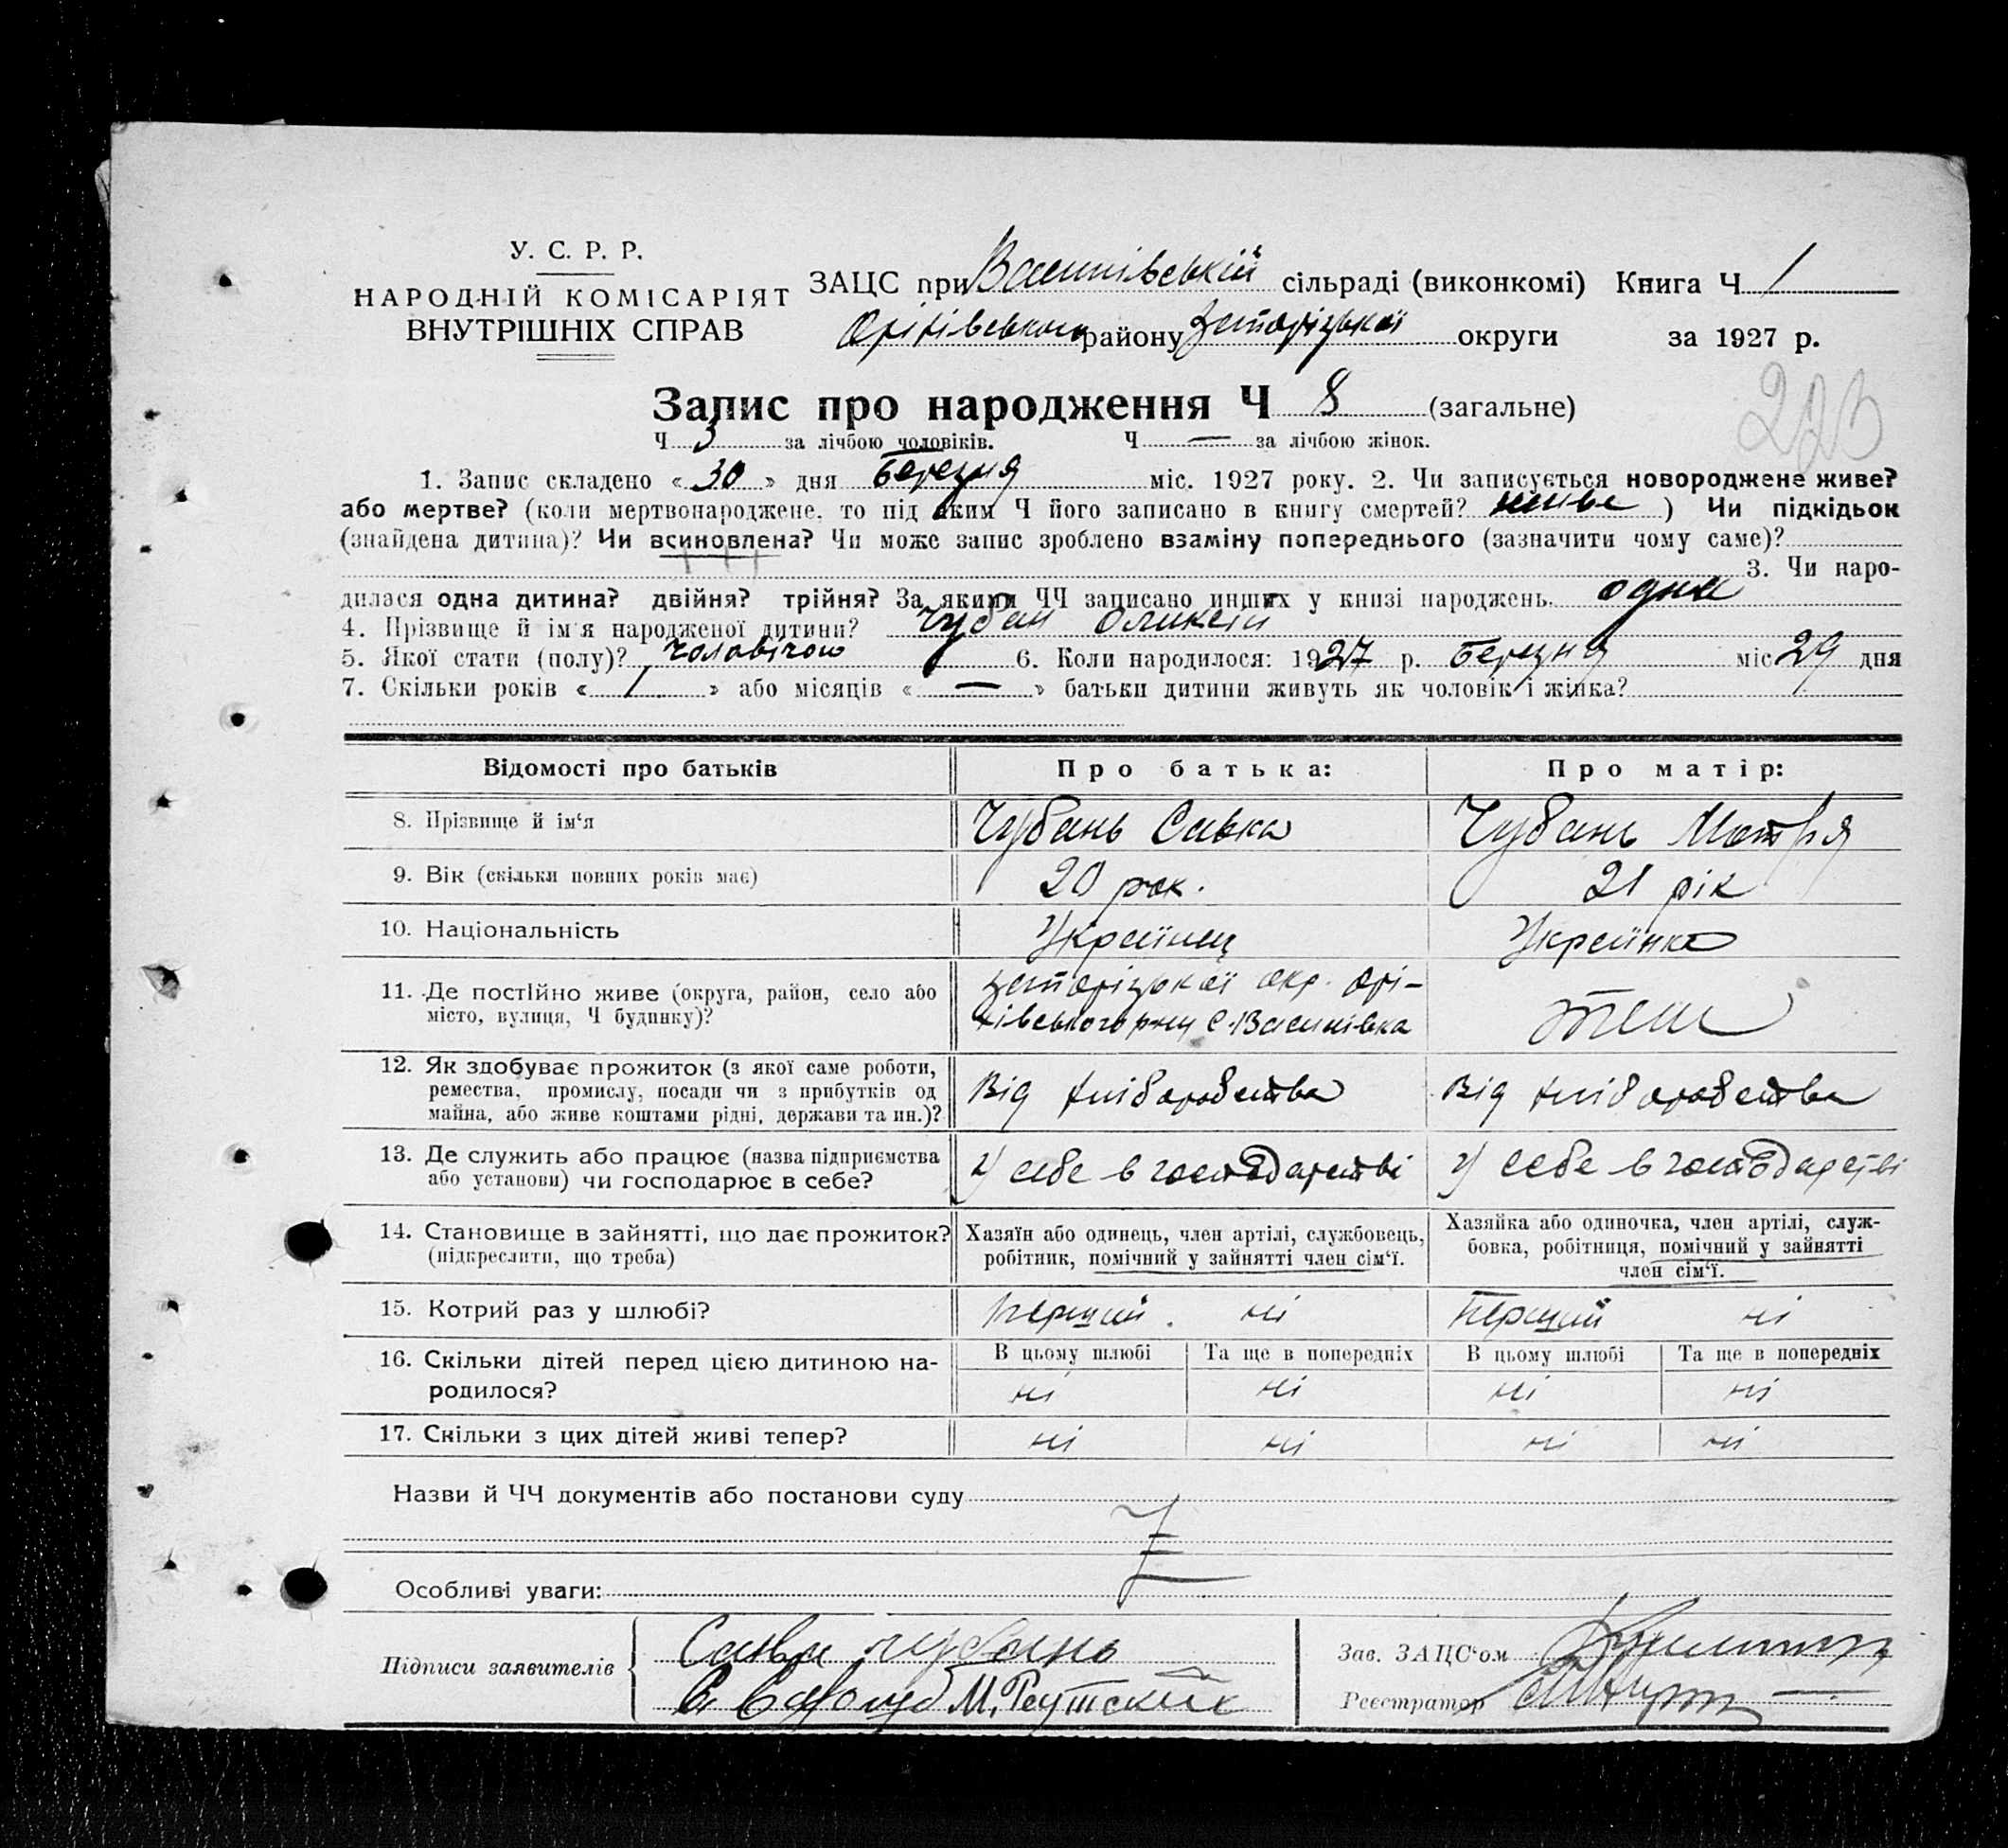 У. С. Р. Р.
НАРОДНІЙ КОМІСАРІЯТ
ВНУТРІШНІХ СПРАВ
ЗАЦС при Василівській сільраді (виконкомі) Книга Ч 1
Оріхівського району Запорізької округи за 1927 р.
223
Запис про народження Ч 8 (загальне)
Ч 3 за лічбою чоловіків. Ч — за лічбою жінок.
1. Запис складено «30» дня Березня міс. 1927 року. 2. Чи записується новороджене живе?
або мертве? (коли мертвонароджене, то під яким Ч його записано в книгу смертей? живе ) Чи підкідьок
(знайдена дитина)? Чи всиновлена? Чи може запис зроблено взаміну попереднього (зазначити чому саме)?
3. Чи наро-
дилася одна дитина? двійня? трійня? За якими ЧЧ записано инших у книзі народжень. одна
4. Прізвище й ім'я народженої дитини? Чубан Оликсій
5. Якої стати (полу)? Чоловічою 6. Коли народилося: 1927 р. Березня міс 29 дня
7. Скільки років « 1 » або місяців « — » батьки дитини живуть як чоловік і жінка?
Відомості про батьків Про батька: Про матір:
8. Прізвище й ім'я Чубань Савка Чубань Мотря
9. Вік (скільки повних років має) 20 рок. 21 рік
10. Національність Українец Українка
11. Де постійно живе (округа, район, село або Запорізької окр. Орі-
місто, вулиця, Ч будинку)? хівського р-ну с. Василівка
12. Як здобуває прожиток (з якої саме роботи,
ремества, промислу, посади чи з прибутків од Від хліборобства Від хліборобства
майна, або живе коштами рідні, держави та ин.)?
13. Де служить або працює (назва підприємства У себе в господарстві У себе в господарстві
або установи) чи господарює в себе?
14. Становище в зайнятті, що дає прожиток? Хазяїн або одинець, член артілі, службовець, Хазяйка або одиночка, член артілі, служ-
(підкреслити, що треба) робітник, помічний у зайнятті член сім'ї. бовка, робітниця, помічний у зайнятті
член сім'ї.
15. Котрий раз у шлюбі? Перший. ні Перший ні
16. Скільки дітей перед цією дитиною на- В цьому шлюбі Та ще в попередніх В цьому шлюбі Та ще в попередніх
родилося? ні ні ні ні
17. Скільки з цих дітей живі тепер? ні ні ні ні
Назви й ЧЧ документів або постанови суду
Особливі уваги:
Підписи заявителів Савка чубань
М. Реутский
Зав. ЗАЦС'ом
Реєстратор